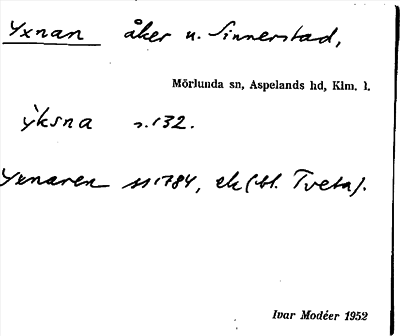 Yxnan åker u. Sinnerstad,
Mörlunda sn, Aspelands hd, Klm. l.
ỳksna s. 132.
Yxnaren 1784, ek (bl. Tveta).
Ivar Modéer 1952